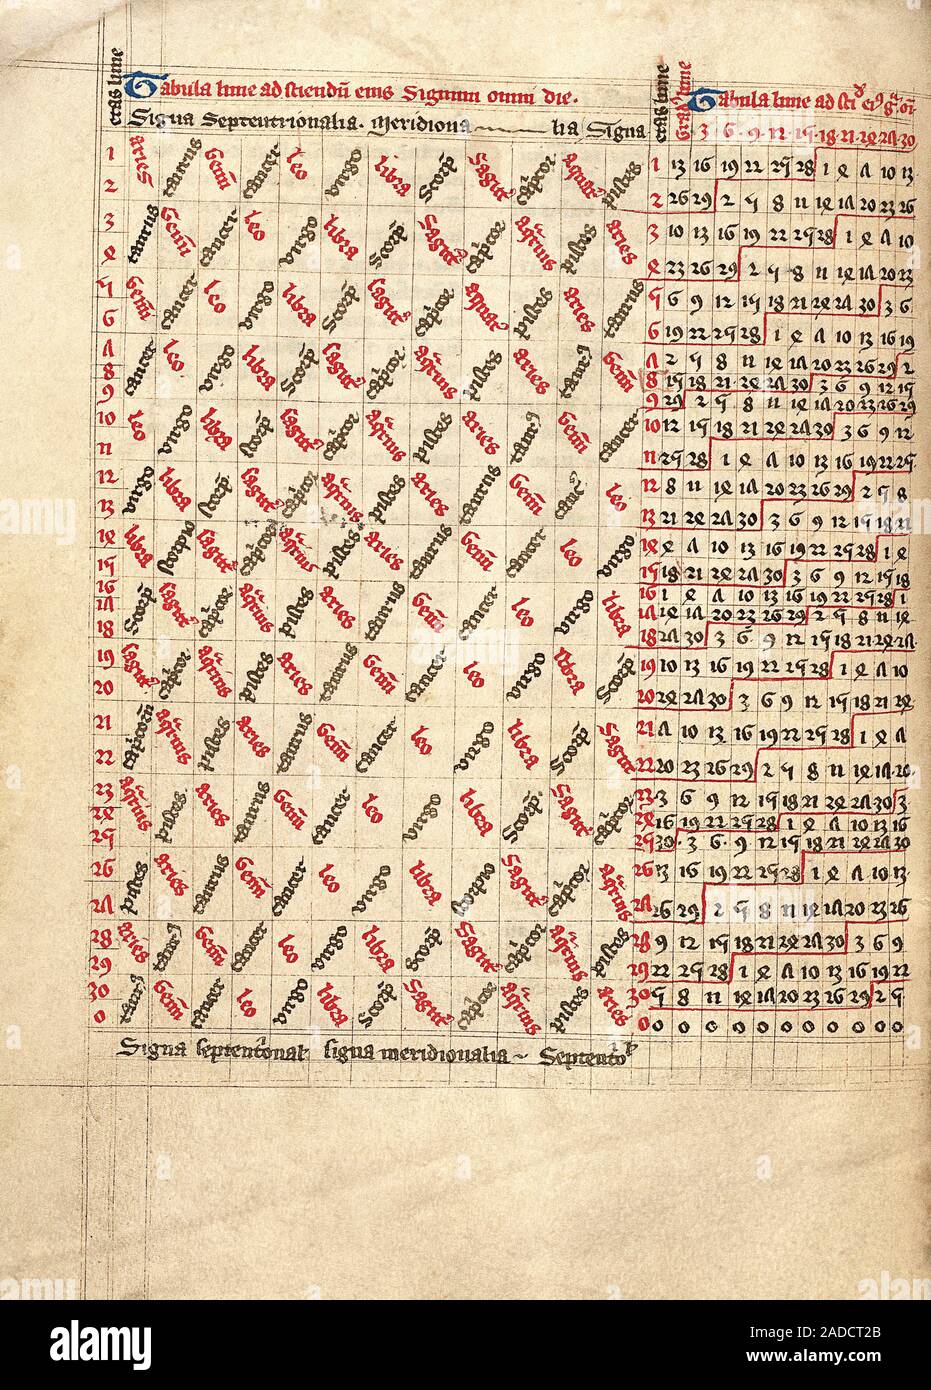 Tabula lune ad sciendū eius Signum omni die.
Signa Septentrionalia. Meridiona lia Signa
etas lune
1 2 aries taurus Gemī cancer leo virgo libra Scorp̄ Sagitt᾽ cap̄cor aquar᾽ pisces
3 4 taurus Gemī cancer leo virgo libra Scorp̄ Sagitt᾽ cap̄cor aq̄rius pisces aries
5 6 Gemī cancer leo virgo libra Scorp̄ Sagitt᾽ cap̄cor aquar᾽ pisces aries taurus
7 8 9 cancer leo virgo libra Scorp̄ Sagitt᾽ cap̄cor aq̄rius pisces aries taur᾽ Gemī
10 11 leo virgo libra Scorp̄ Sagitt᾽ cap̄cor aq̄rius pisces aries taur᾽ Gemī cancer
12 13 virgo libra Scorp̄ Sagitt᾽ cap̄cor aq̄rius pisces aries taurus Gemī canc᾽ leo
14 15 libra Scorpio Sagitt᾽ cap̄cor aq̄rius pisces aries taurus Gemī cancer leo virgo
16 17 18 Scorp̄ Sagitt᾽ cap̄cor aq̄rius pisces aries taurus Gemī cancer leo virgo libra
19 20 Sagitt᾽ cap̄cor aq̄rius pisces aries taurus Gemī cancer leo virgo libra Scorp̄
21 22 cap̄corn̄ aq̄rius pisces aries taurus Gemī cancer leo virgo libra Scorp̄ Sagitt᾽
23 24 25 aq̄rius pisces. aries taurus Gemī cancer leo virgo libra Scorp̄. Sagitt᾽ cap̄cor
26 27 pisces aries taurus Gemī cancer leo virgo libra Scorpio Sagitt᾽ cap̄cor aq̄rius
28 29 aries taur᾽ Gemī cancer leo virgo libra Scorp̄ Sagitt᾽ cap̄cor aq̄rius pisces
30 0 taur᾽ Gemī cancer leo virgo libra Scorp̄ Sagitt᾽ cap̄cor aq̄rius pisces aries
Signa septent᾽onal᾽ signa meridionalia ~ Septent᾽
etas lune
Grad᾽ lune
Tabula lune ad sci᾽ ei᾽ g᾽ oī
3 6 9 12 15 18 21 24 27 30
1 13 16 19 22 25 28 1 4 7 10 13
2 26 29 2 5 8 11 14 17 20 23 26
3 10 13 16 19 22 25 28 1 4 7 10
4 23 26 29 2 5 8 11 14 17 20 23
5 6 9 12 15 18 21 24 27 30 3 6
6 19 22 25 28 1 4 7 10 13 16 19
7 2 5 8 11 14 17 20 23 26 29 2
8 15 18 21 24 27 30 3 6 9 12 15
9 29 2 5 8 11 14 17 20 23 26 29
10 12 15 18 21 24 27 30 3 6 9 12
11 25 28 1 4 7 10 13 16 19 22 25
12 8 11 14 17 20 23 26 29 2 5 8
13 21 24 27 30 3 6 9 12 15 18 21
14 4 7 10 13 16 19 22 25 28 1 4
15 18 21 24 27 30 3 6 9 12 15 18
16 1 4 7 10 13 16 19 22 25 28 1
17 14 17 20 23 26 29 2 5 8 11 14
18 27 30 3 6 9 12 15 18 21 24 27
19 10 13 16 19 22 25 28 1 4 7 10
20 24 27 30 3 6 9 12 15 18 21 24
21 7 10 13 16 19 22 25 28 1 4 7
22 20 23 26 29 2 5 8 11 14 17 20
23 3 6 9 12 15 18 21 24 27 30 3
24 16 19 22 25 28 1 4 7 10 13 16
25 30 3 6 9 12 15 18 21 24 27 30
26 13 16 19 22 25 28 1 4 7 10 13
27 26 29 2 5 8 11 14 17 20 23 26
28 9 12 15 18 21 24 27 30 3 6 9
29 22 25 28 1 4 7 10 13 16 19 22
30 5 8 11 14 17 20 23 26 29 2 5
0 0 0 0 0 0 0 0 0 0 0 0
alamy
Image ID: 2ADCT2B
www.alamy.com